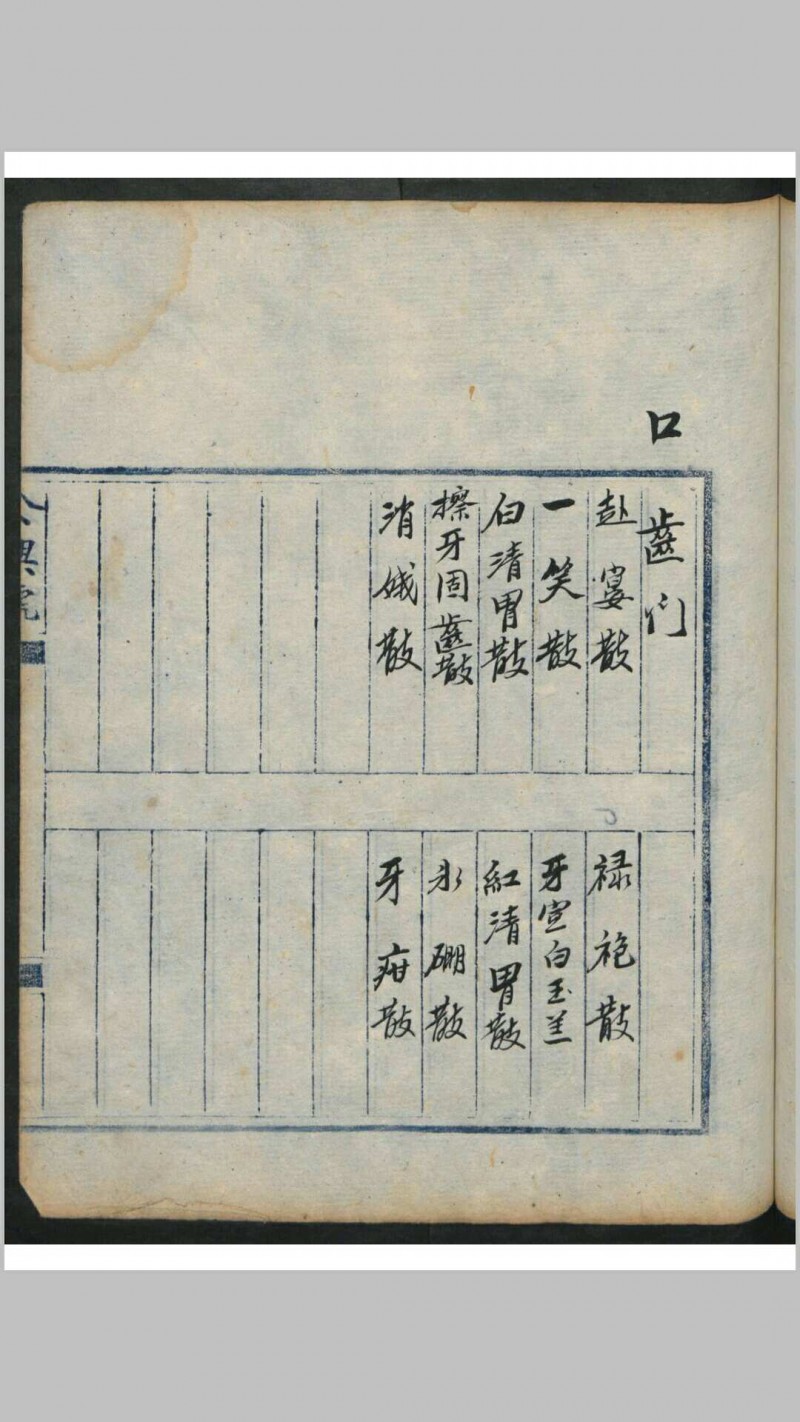 口齒门
赴宴散
禄袍散
一笑散
牙宣白玉羔
白清胃散
紅清胃散
擦牙固齒散
氷硼散
消娥散
牙疳散